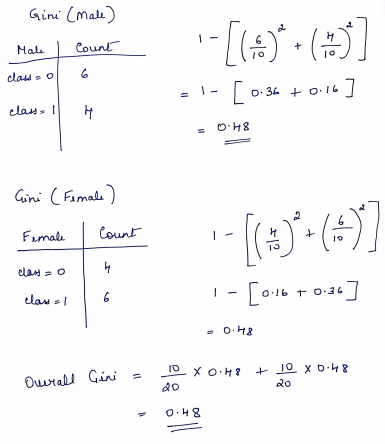 Gini (Male)
Male | Count
class = 0 | 6
class = 1 | 4
1 - [(6/10)² + (4/10)²]
= 1 - [0.36 + 0.16]
= 0.48
Gini (Female)
Female | Count
class = 0 | 4
class = 1 | 6
1 - [(4/10)² + (6/10)²]
1 - [0.16 + 0.36]
= 0.48
Overall Gini = 10/20 × 0.48 + 10/20 × 0.48
= 0.48